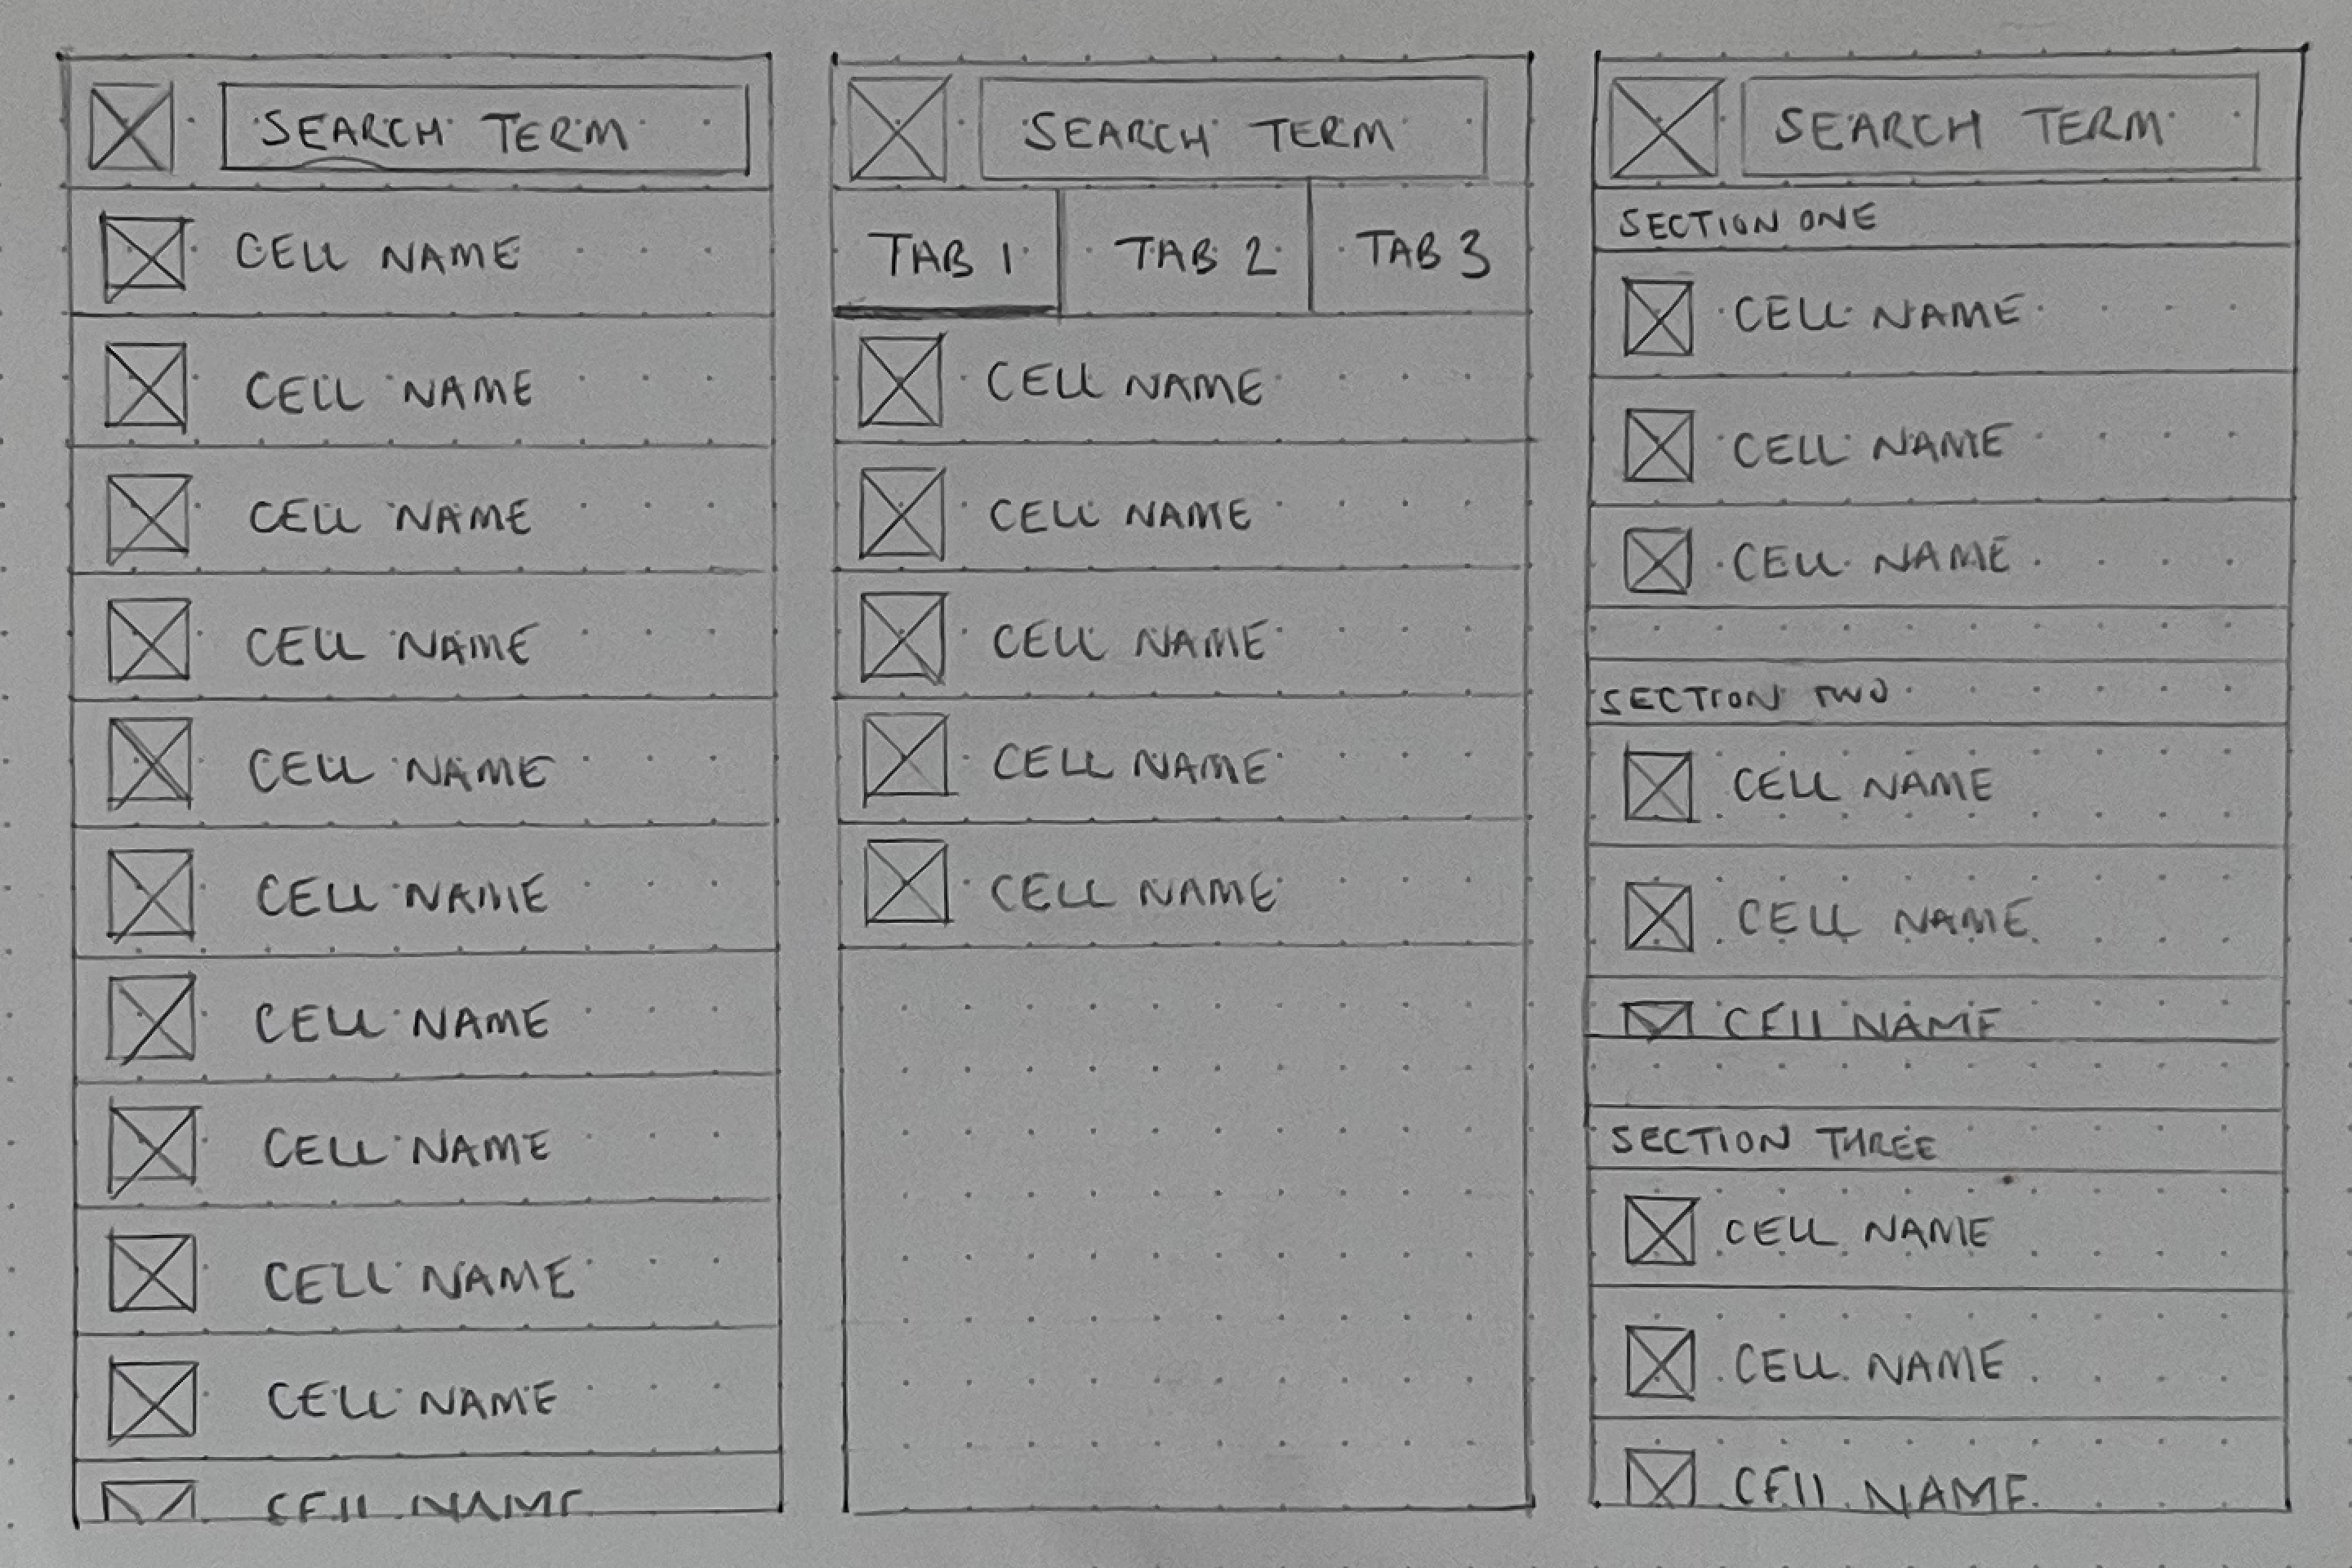 SEARCH TERM
CELL NAME
CELL NAME
CELL NAME
CELL NAME
CELL NAME
CELL NAME
CELL NAME
CELL NAME
CELL NAME
CELL NAME
CELL NAME
SEARCH TERM
TAB 1 TAB 2 TAB 3
CELL NAME
CELL NAME
CELL NAME
CELL NAME
CELL NAME
SEARCH TERM
SECTION ONE
CELL NAME
CELL NAME
CELL NAME
SECTION TWO
CELL NAME
CELL NAME
CELL NAME
SECTION THREE
CELL NAME
CELL NAME
CELL NAME